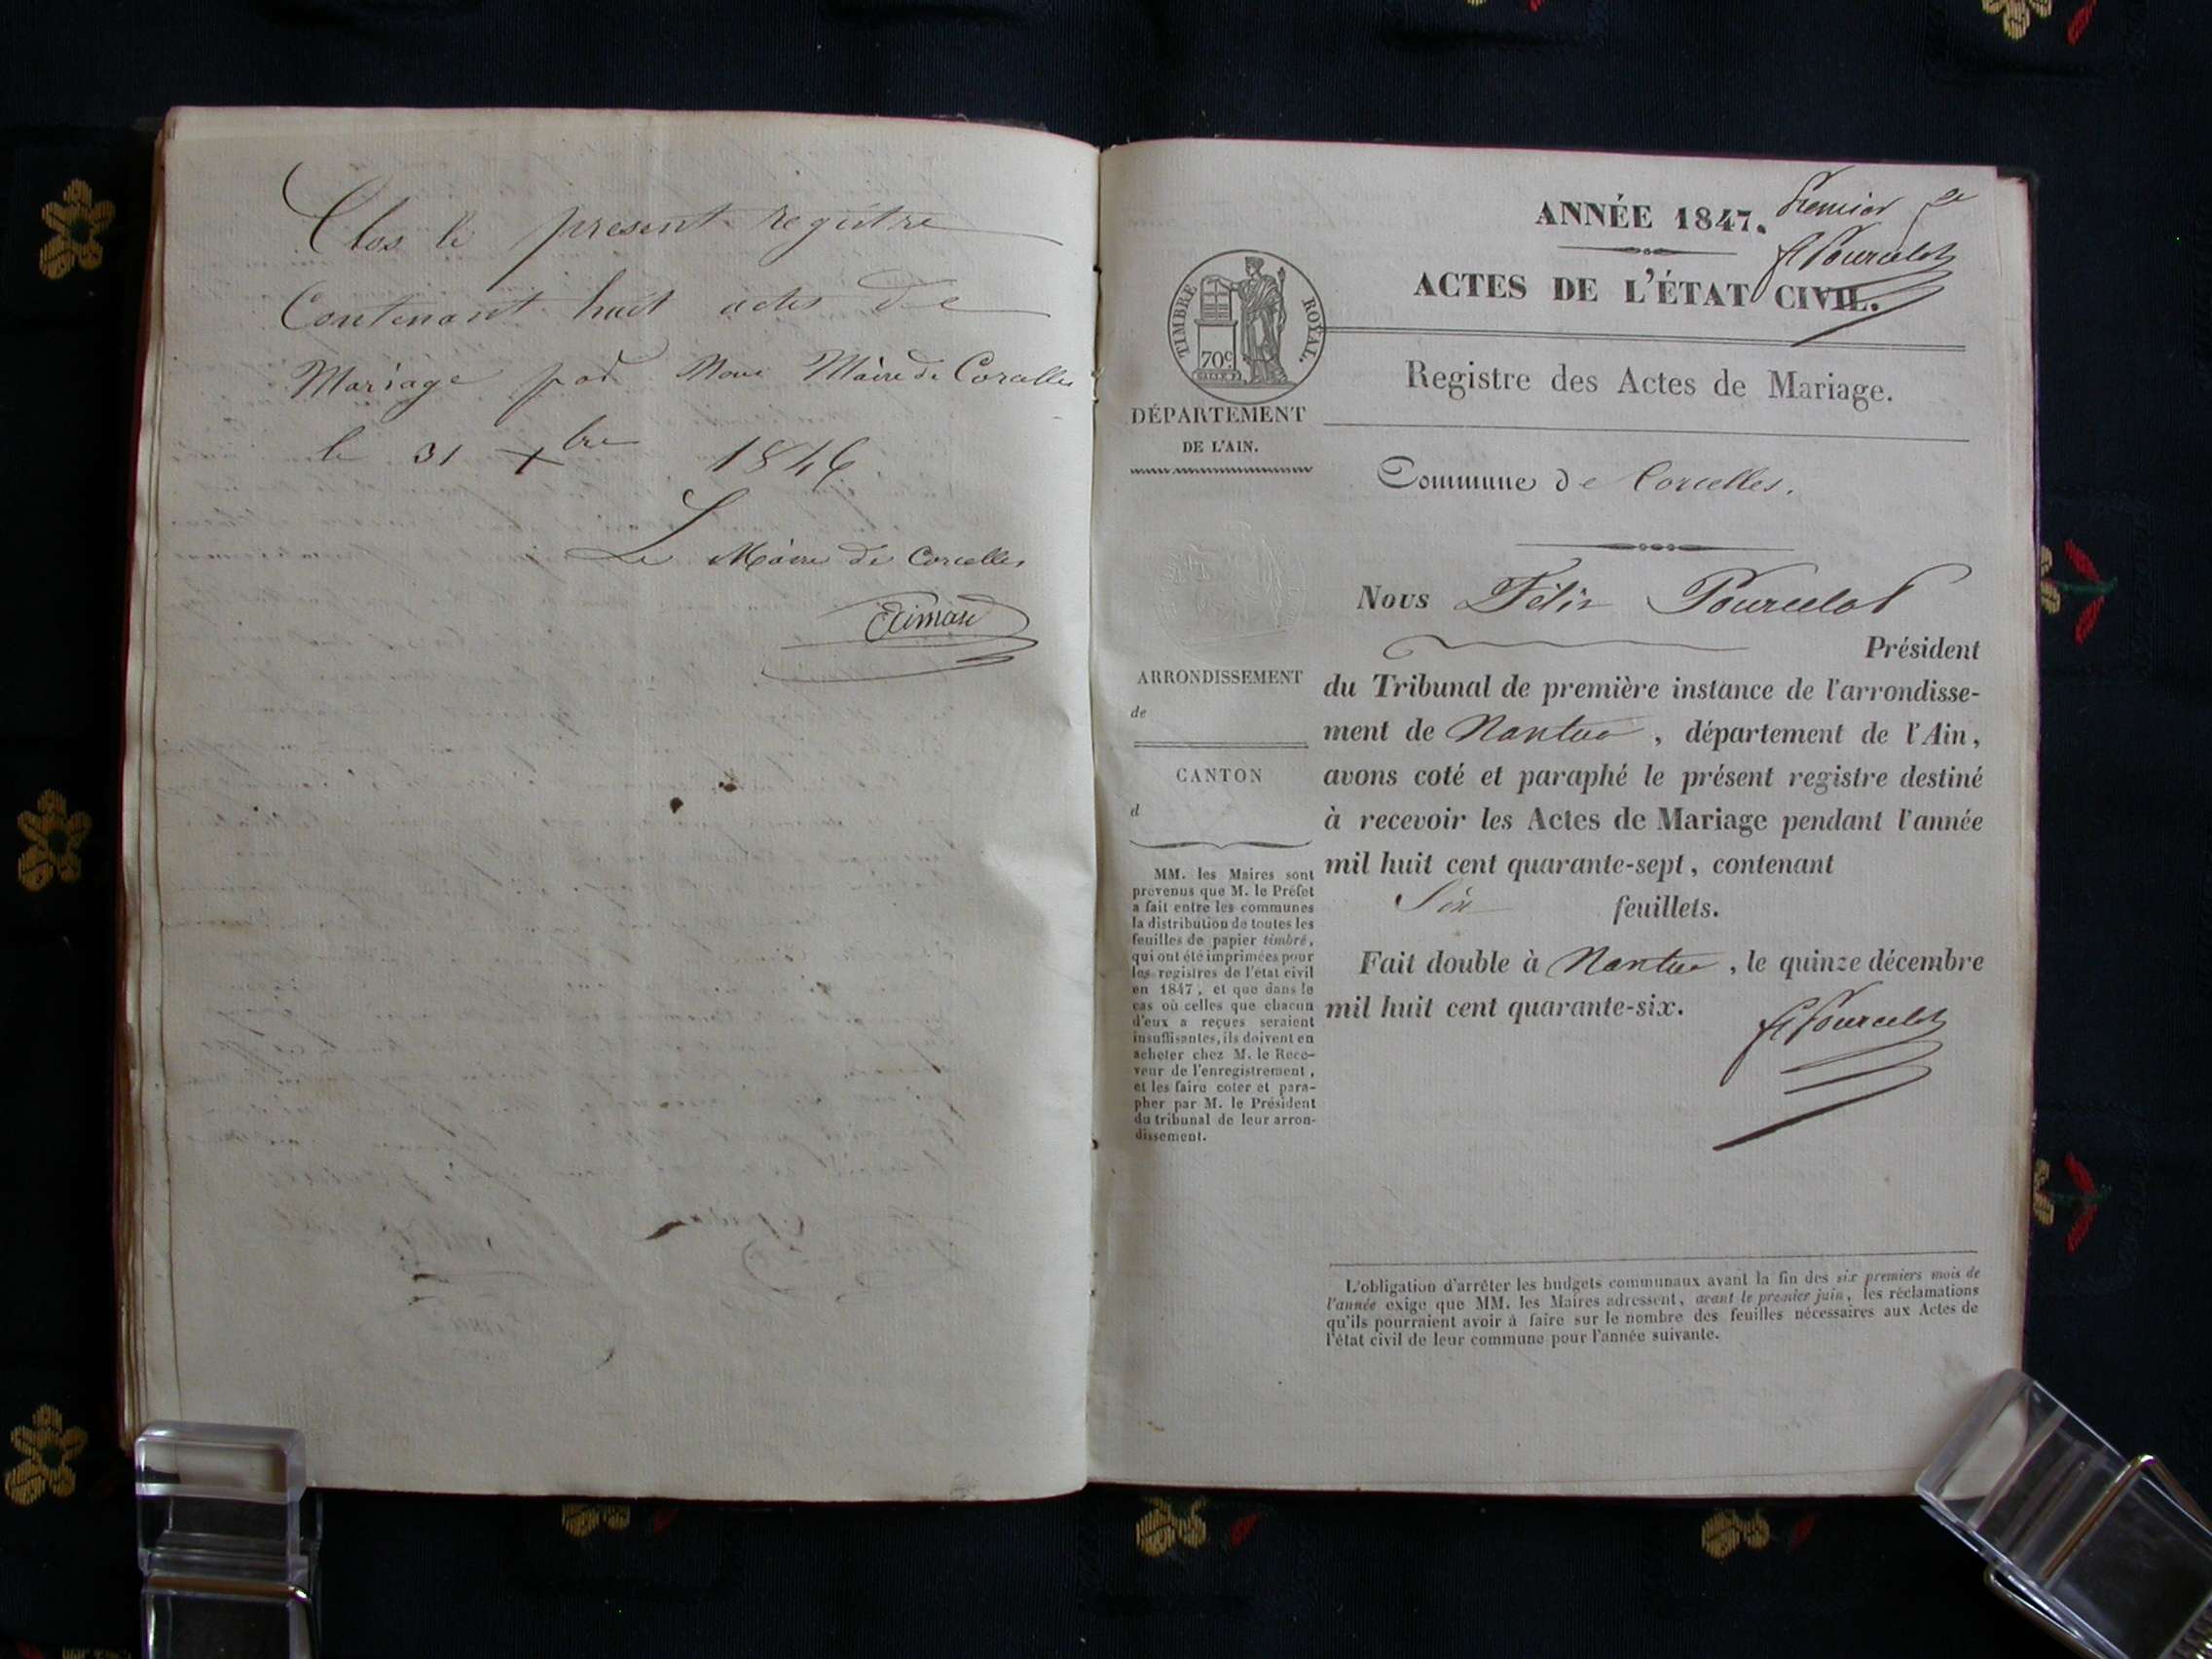 Clos le present registre
Contenant huit actes de
Mariage par Nous Maire de Corcelles
le 31 Xbre 1846
Le Maire de Corcelles
ANNÉE 1847.
Premier
F Pourcelot
ACTES DE L'ÉTAT CIVIL.
TIMBRE ROYAL.
70c
Registre des Actes de Mariage.
DÉPARTEMENT
DE L'AIN.
Commune de Corcelles.
Nous Félix Pourcelot
Président
ARRONDISSEMENT
de
CANTON
d
du Tribunal de première instance de l'arrondisse-
ment de Nantua, département de l'Ain,
avons coté et paraphé le présent registre destiné
à recevoir les Actes de Mariage pendant l'année
mil huit cent quarante-sept, contenant
Six feuillets.
Fait double à Nantua, le quinze décembre
mil huit cent quarante-six.
F Pourcelot
MM. les Maires sont
prévenus que M. le Préfet
a fait entre les communes
la distribution de toutes les
feuilles de papier timbré,
qui ont été imprimées pour
les registres de l'état civil
en 1847, et que dans le
cas où celles que chacun
d'eux a reçues seraient
insuffisantes, ils doivent en
acheter chez M. le Rece-
veur de l'enregistrement,
et les faire coter et para-
pher par M. le Président
du tribunal de leur arron-
dissement.
L'obligation d'arrêter les budgets communaux avant la fin des six premiers mois de
l'année exige que MM. les Maires adressent, avant le premier juin, les réclamations
qu'ils pourraient avoir à faire sur le nombre des feuilles nécessaires aux Actes de
l'état civil de leur commune pour l'année suivante.